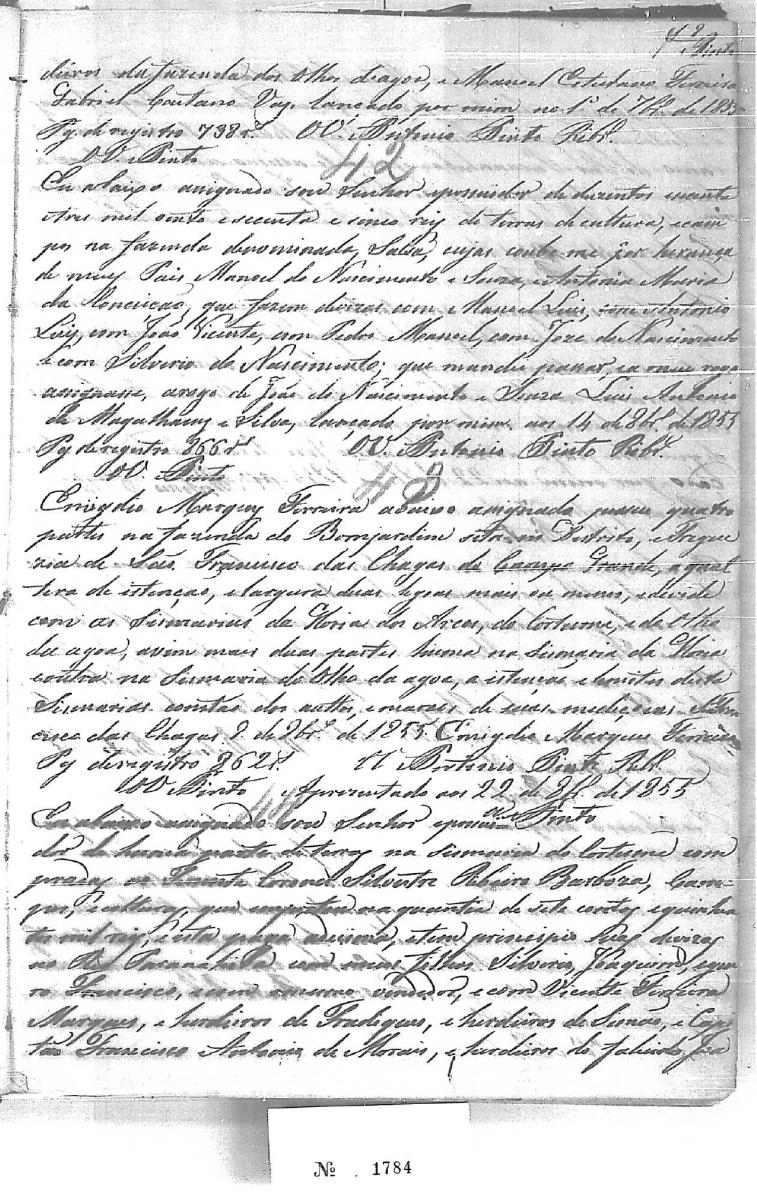 Pinto
divros da fazenda dos Olhos dagoa, e Manoel Custodano Ferreira
Gabriel Caetano Vaz, lançado por mim no 1º de 7bro. de 1855
Pg. de registro 738 rs. O V. Antonio Pinto Ribr.
O V. Pinto
42
Eu abaixo asignado sou Senhor eposuidor de duzentos secente
etres mil oento e secenta e sinco reiz de terras de cultura, ecam
pos na fazenda denominada, Salva, cujas coube me por herança
de meuz Pais Manoel do Nascimento e Souza, e Antonia Maria
da Conceição, que fazem divizas com e Manoel Luis, com Antonio
Luiz, com João Vicente, com Pedro Manoel, com Joze do Nascimento
e com Silverio do Nascimento; que mandei pasar, ea meu rogo
asignase, arogo de João do Nascimento e Souza Luis Antonio
de Magalhanz e Silva, lançado por mim aos 14 de 8br. de 1855
Pg de registro 866 rs O V. Antonio Pinto Ribr.
O V. Pinto
43
Emigdio Marquez Ferreira abaixo asignado posue quatro
partes na fazenda do Bomjardim sita no Distrito, e Fregue
zia de São Francisco das Chagas do Campo Grande, aqual
tera de estenção, e largura duas legoas mais ou menos, e devide
com as Sismarias da Gloria dos Arcos, do Costume, e do Olho
da agoa, asim mais duas partes huma na Sismaria da Gloria
eoutra na Sismaria do Olho da agoa, a estenção e lemites deste
Sismarias constão dos auttos, emarcos de suas medições. S. Fran
cisco das Chagas 8 de 9br. de 1855. Emigdio Marques Ferreira
Pg de registro 862 rs. O V Antonio Pinto Ribr.
O V Pinto Aprezentado aos 22 de de 1855
44 O V. Pinto
Eu abaixo asignado sou Senhor eposui
dor de huma parte de terras na Sismaria do Costume com
prada, ao Tenente Coronel Silvestre Ribeiro Barboza, Cam-
pos, e cultura, que emportou na quantia de sete contos equinhen
tos mil reiz, e esta paga a, etem principio suas divizas
no R. Paranahiba com meos Filhos Silverio, Joaquim, e
Francisco, e com o mesmo vendedor, e com Vicente Ferreira
Marques, e herdeiros de Fradeques, e herdeiros de Simão, e Capi
tão Francisco Antonio de Morais, e herdeiros do falecido Joa
Nº 1784